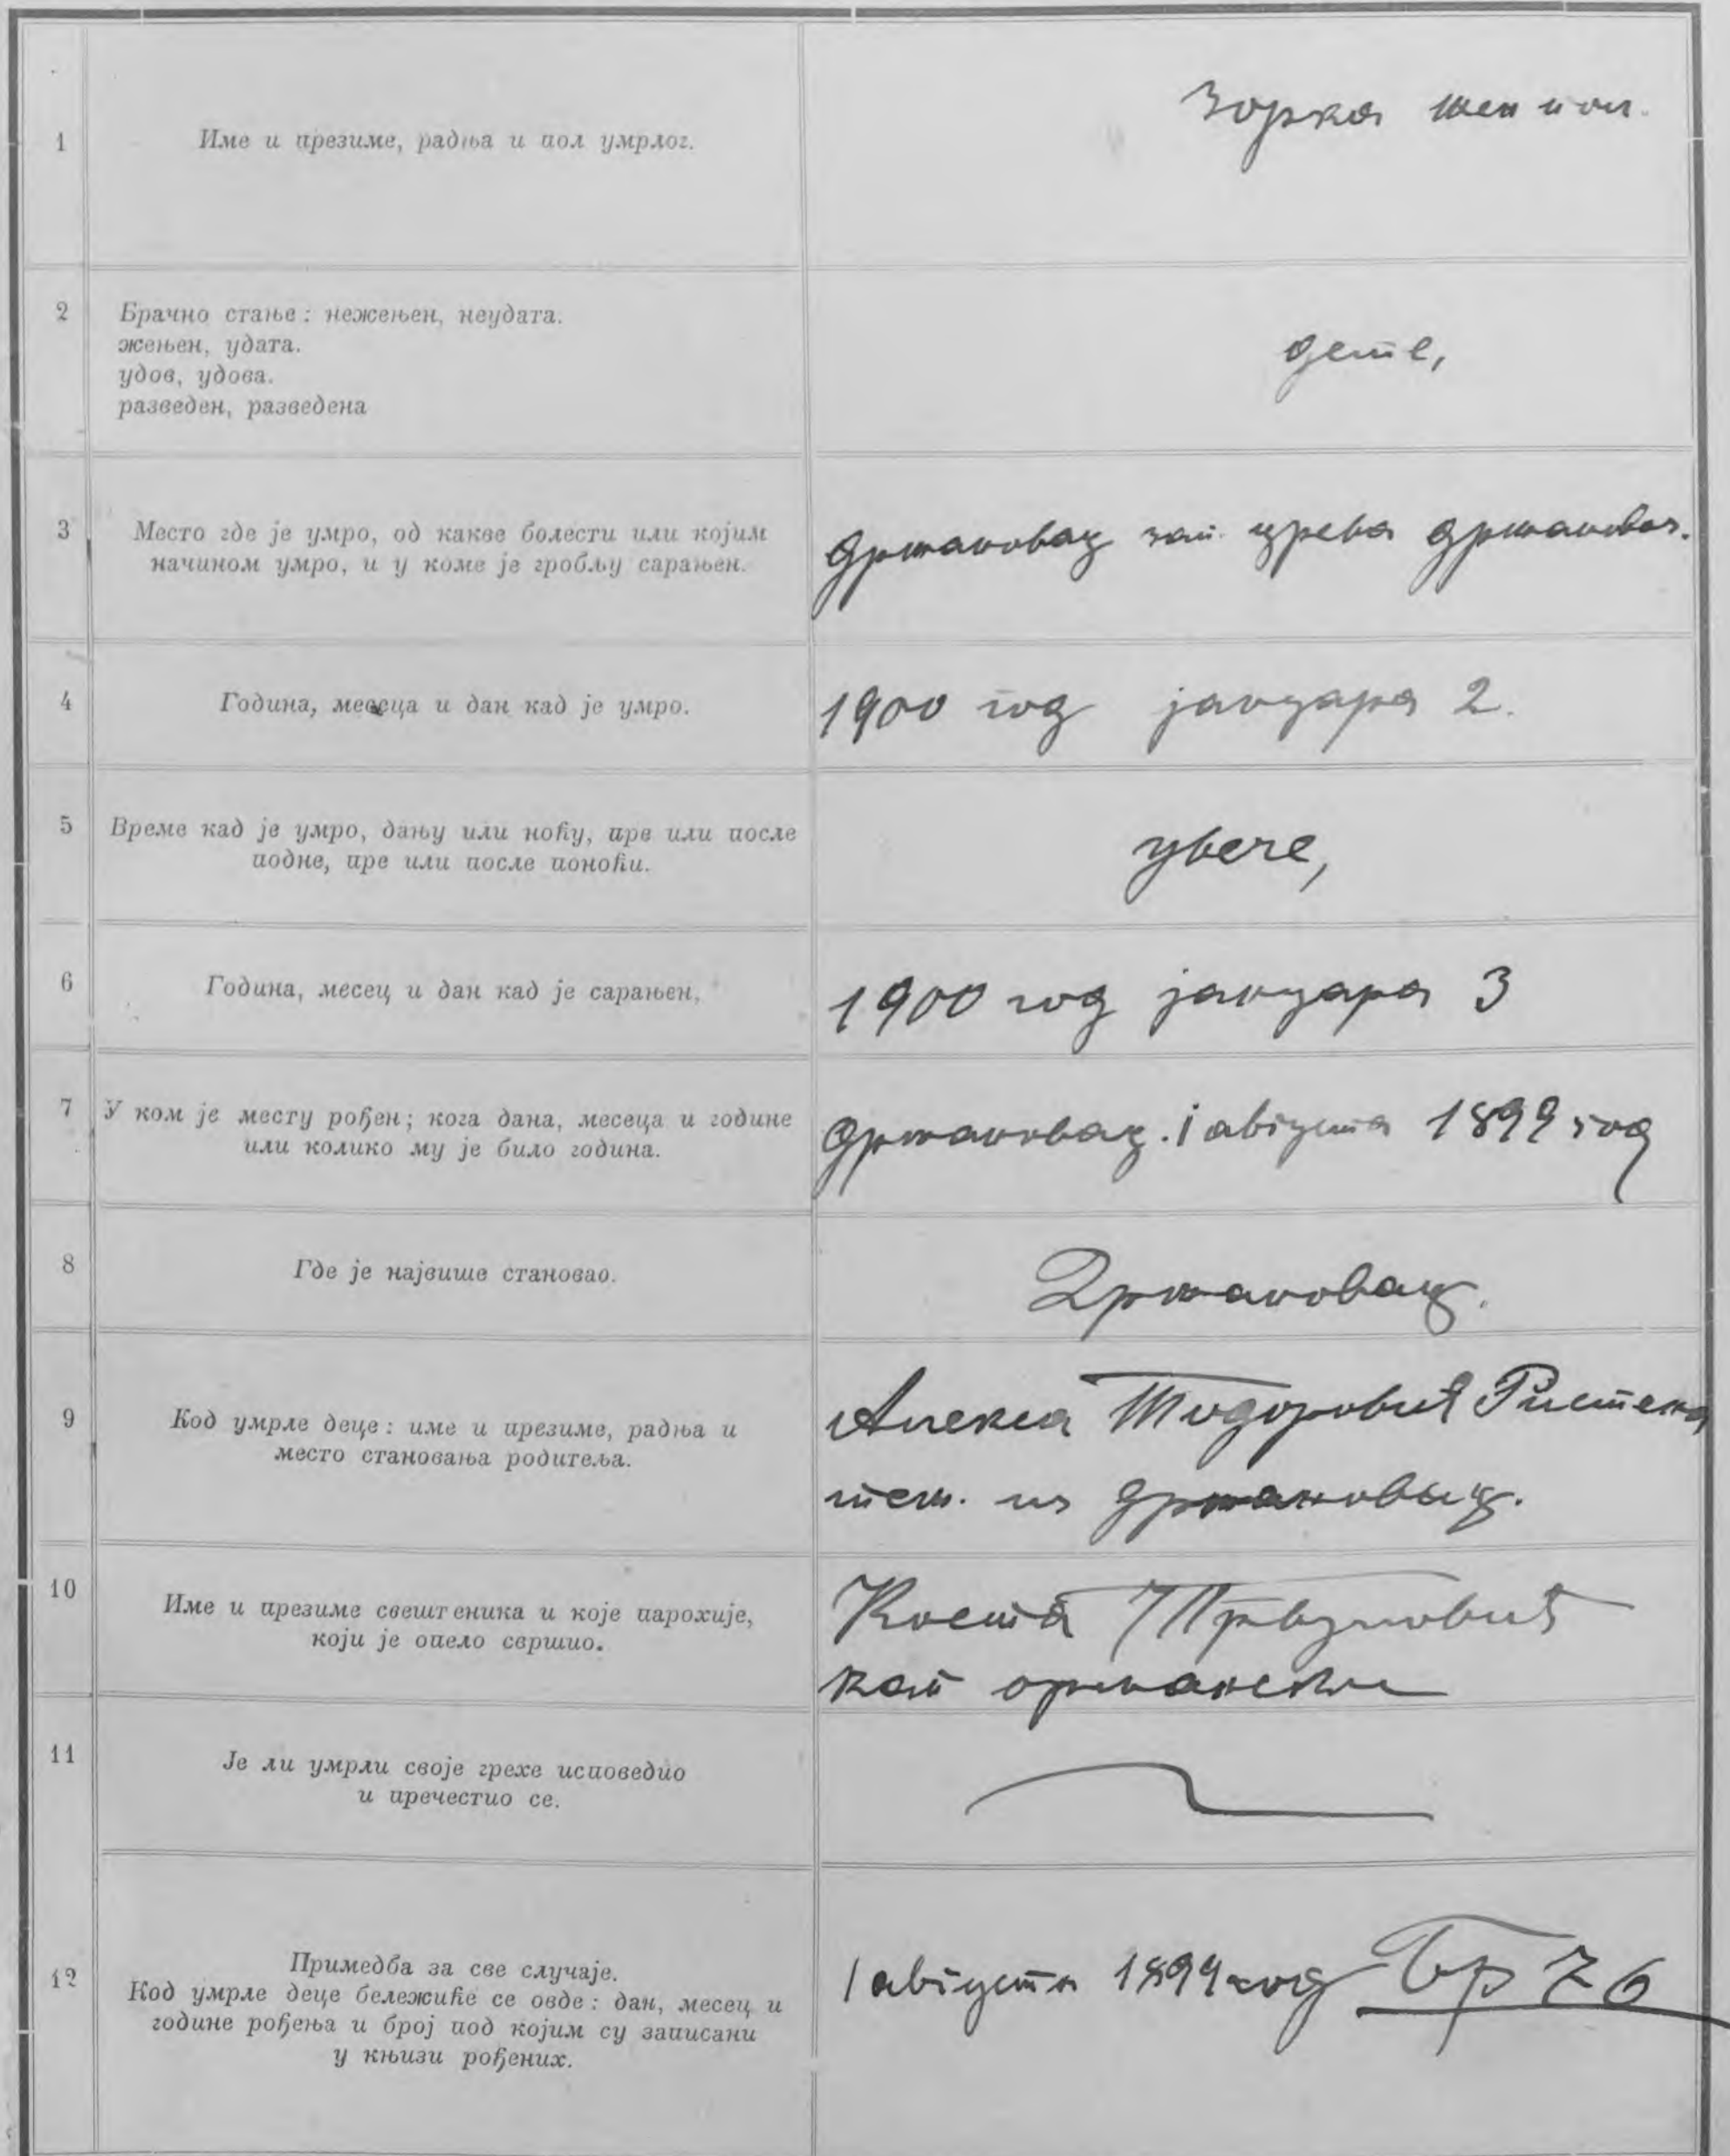 1
Име и презиме, радња и пол умрлог.
Зорка жен пол.
2
Брачно стање: нежењен, неудата.
жењен, удата.
удов, удова.
разведен, разведена
дете,
3
Место где је умро, од какве болести или којим
начином умро, и у коме је гробљу сарањен.
држановац зап. црева држановач.
4
Година, месеца и дан кад је умро.
1900 год јануара 2.
5
Време кад је умро, дању или ноћу, пре или после
подне, пре или после поноћи.
увече,
6
Година, месец и дан кад је сарањен,
1900 год јануара 3
7
У ком је месту рођен; кога дана, месеца и године
или колико му је било година.
држановац. 1 августа 1899 год
8
Где је највише становао.
Држановац.
9
Код умрле деце: име и презиме, радња и
место становања родитеља.
Алекса Тодоровић
теж. из држановца.
10
Име и презиме свештеника и које парохије,
који је опело свршио.
Коста
кап
11
Је ли умрли своје грехе исповедио
и пречестио се.
12
Примедба за све случаје.
Код умрле деце бележиће се овде: дан, месец и
године рођења и број под којим су записани
у књизи рођених.
1 августа 1899 год Бр 76